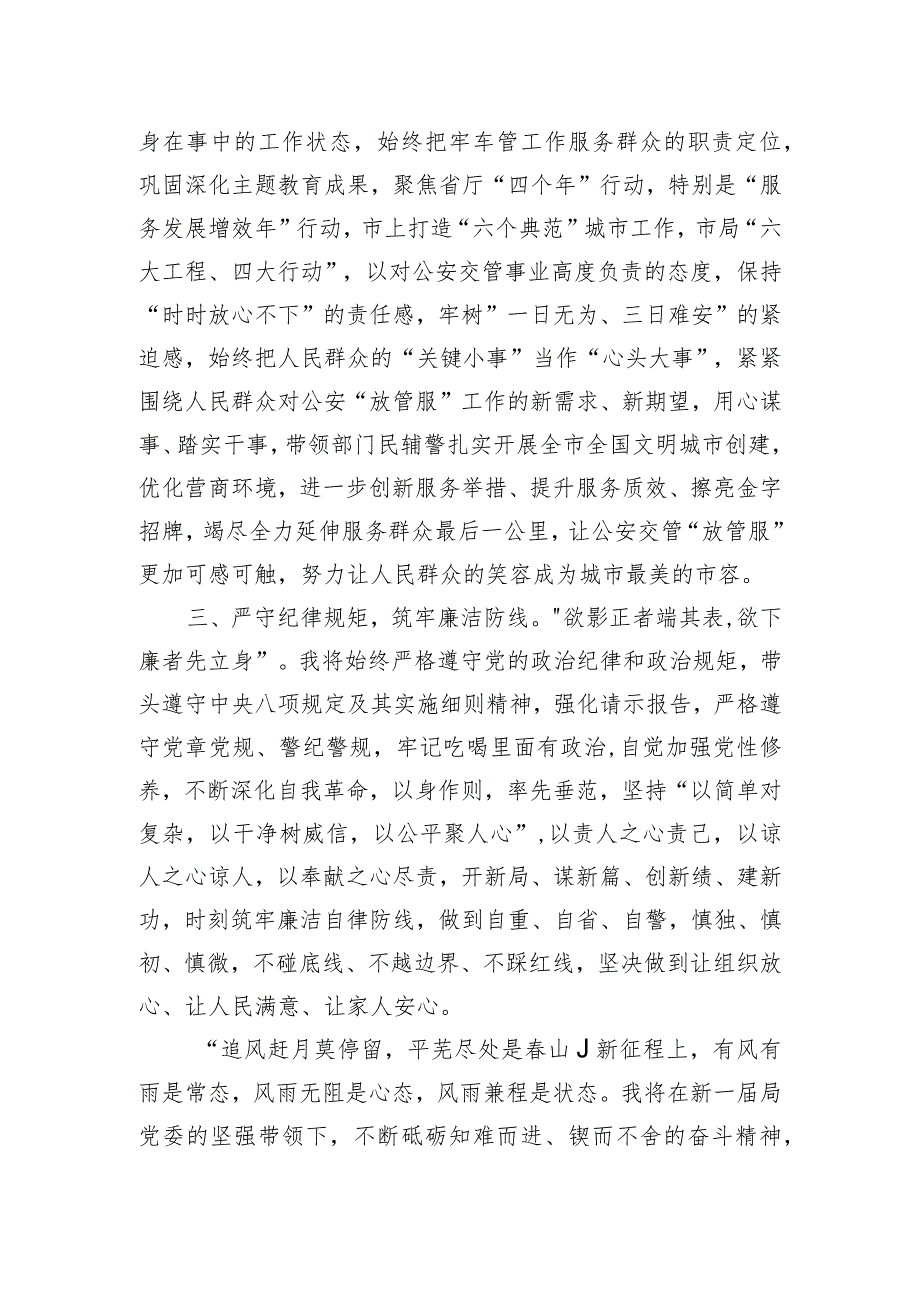 身在事中的工作状态，始终把牢车管工作服务群众的职责定位，
巩固深化主题教育成果，聚焦省厅“四个年”行动，特别是“服
务发展增效年”行动，市上打造“六个典范”城市工作，市局“六
大工程、四大行动”，以对公安交管事业高度负责的态度，保持
“时时放心不下”的责任感，牢树”一日无为、三日难安”的紧
迫感，始终把人民群众的“关键小事”当作“心头大事”，紧紧
围绕人民群众对公安“放管服”工作的新需求、新期望，用心谋
事、踏实干事，带领部门民辅警扎实开展全市全国文明城市创建，
优化营商环境，进一步创新服务举措、提升服务质效、擦亮金字
招牌，竭尽全力延伸服务群众最后一公里，让公安交管“放管服”
更加可感可触，努力让人民群众的笑容成为城市最美的市容。
三、严守纪律规矩，筑牢廉洁防线。"欲影正者端其表,欲下
廉者先立身”。我将始终严格遵守党的政治纪律和政治规矩，带
头遵守中央八项规定及其实施细则精神，强化请示报告，严格遵
守党章党规、警纪警规，牢记吃喝里面有政治,自觉加强党性修
养，不断深化自我革命，以身作则，率先垂范，坚持“以简单对
复杂，以干净树威信，以公平聚人心”,以责人之心责己，以谅
人之心谅人，以奉献之心尽责，开新局、谋新篇、创新绩、建新
功，时刻筑牢廉洁自律防线，做到自重、自省、自警，慎独、慎
初、慎微，不碰底线、不越边界、不踩红线，坚决做到让组织放
心、让人民满意、让家人安心。
“追风赶月莫停留，平芜尽处是春山J新征程上，有风有
雨是常态，风雨无阻是心态，风雨兼程是状态。我将在新一届局
党委的坚强带领下，不断砥砺知难而进、锲而不舍的奋斗精神，